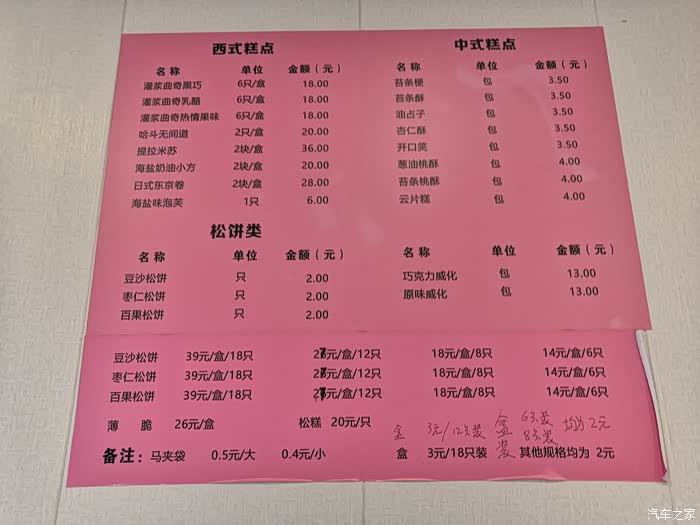 西式糕点
名称 单位 金额（元）
灌浆曲奇黑巧 6只/盒 18.00
灌浆曲奇乳酪 6只/盒 18.00
灌浆曲奇热情果味 6只/盒 18.00
哈斗无间道 2只/盒 20.00
提拉米苏 2块/盒 36.00
海盐奶油小方 2块/盒 20.00
日式东京卷 2块/盒 28.00
海盐味泡芙 1只 6.00
中式糕点
名称 单位 金额（元）
苔条梗 包 3.50
苔条酥 包 3.50
油占子 包 3.50
杏仁酥 包 3.50
开口笑 包 3.50
葱油桃酥 包 4.00
苔条桃酥 包 4.00
云片糕 包 4.00
松饼类
名称 单位 金额（元）
豆沙松饼 只 2.00
枣仁松饼 只 2.00
百果松饼 只 2.00
名称 单位 金额（元）
巧克力威化 包 13.00
原味威化 包 13.00
豆沙松饼 39元/盒/18只 元/盒/12只 18元/盒/8只 14元/盒/6只
枣仁松饼 39元/盒/18只 元/盒/12只 18元/盒/8只 14元/盒/6只
百果松饼 39元/盒/18只 元/盒/12只 18元/盒/8只 14元/盒/6只
薄脆 26元/盒 松糕 20元/只
盒 3元/12只装 盒装 6只装 8只装 均为2元
备注：马夹袋 0.5元/大 0.4元/小 盒 3元/18只装 其他规格均为 2元
汽车之家